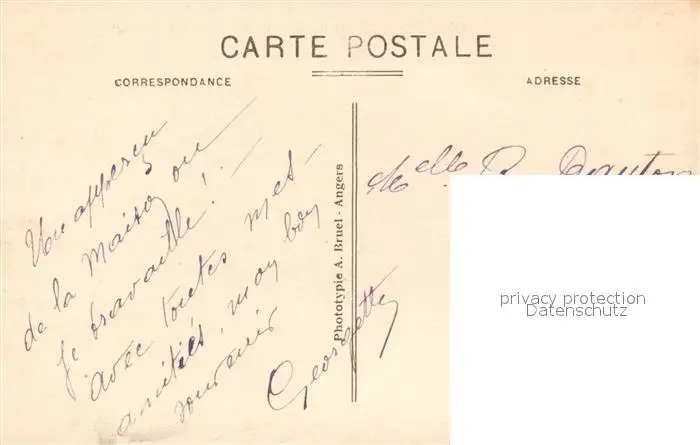 CARTE POSTALE
CORRESPONDANCE
ADRESSE
Un apperçu
de la maison ou
je travaille! -
avec toutes mes
amitiés, mon bon
souvenir
Georgette
Phototypie A. Bruel - Angers
Melle R.
privacy protection
Datenschutz